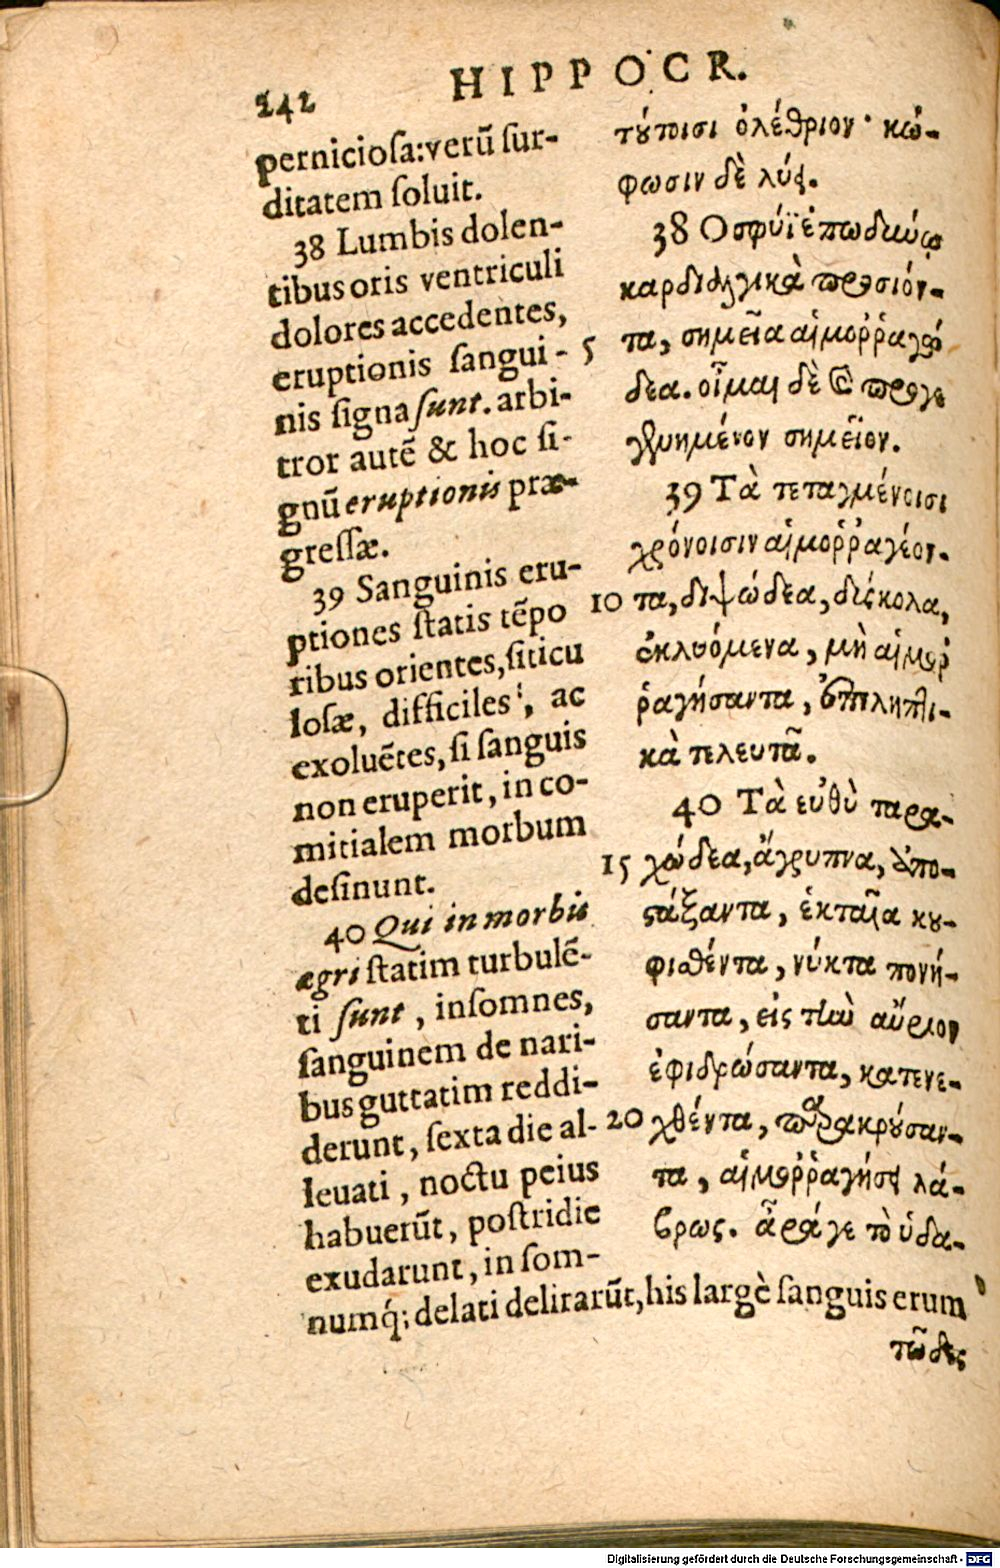 242
HIPPOCR.
pernicioſa:verũ ſur-
ditatem ſoluit.
38 Lumbis dolen-
tibus oris ventriculi
dolores accedentes,
eruptionis ſangui-
nis ſigna ſunt. arbi-
tror autẽ & hoc ſi-
gnũ eruptionis præ-
greſſæ.
39 Sanguinis eru-
ptiones ſtatis tẽpo
ribus orientes, ſiticu
loſæ, difficiles, ac
exoluẽtes, ſi ſanguis
non eruperit, in co-
mitialem morbum
deſinunt.
40 Qui in morbis
ægri ſtatim turbulẽ-
ti ſunt, inſomnes,
ſanguinem de nari-
bus guttatim reddi-
derunt, ſexta die al-
leuati, noctu peius
habuerũt, poſtridie
exudarunt, in ſom-
numq́; delati delirarũt, his largè ſanguis erum
τύποισι ὀλέθριον· κώ-
φωσιν δὲ λύει.
38 Οσφύϊ ἐπωδύνῳ
καρδιαλγικὰ προσιόν-
5 τα, σημεῖα αἱμοῤῥαγώ
δεα. οἶμαι δὲ καὶ προγε
γενημένον σημεῖον.
39 Τὰ τεταγμένοισι
χρόνοισιν αἱμοῤῥαγέον-
10 τα, διψώδεα, δύσκολα,
ἐκλυόμενα, μὴ αἱμοῤ
ῥαγήσαντα, ἐπιληπτι-
κὰ τελευτᾶ.
40 Τὰ εὐθὺ ταρα-
15 χώδεα, ἄγρυπνα, ἀπο-
στάξαντα, ἑκταῖα κου-
φισθέντα, νύκτα πονή-
σαντα, εἰς τὴν αὔριον
ἐφιδρώσαντα, κατενε-
20 χθέντα, παρακρούσαν-
τα, αἱμοῤῥαγήσει λά-
βρως. ἆρά γε τὸ ὑδα-
τῶδες
Digitalisierung gefördert durch die Deutsche Forschungsgemeinschaft - DFG